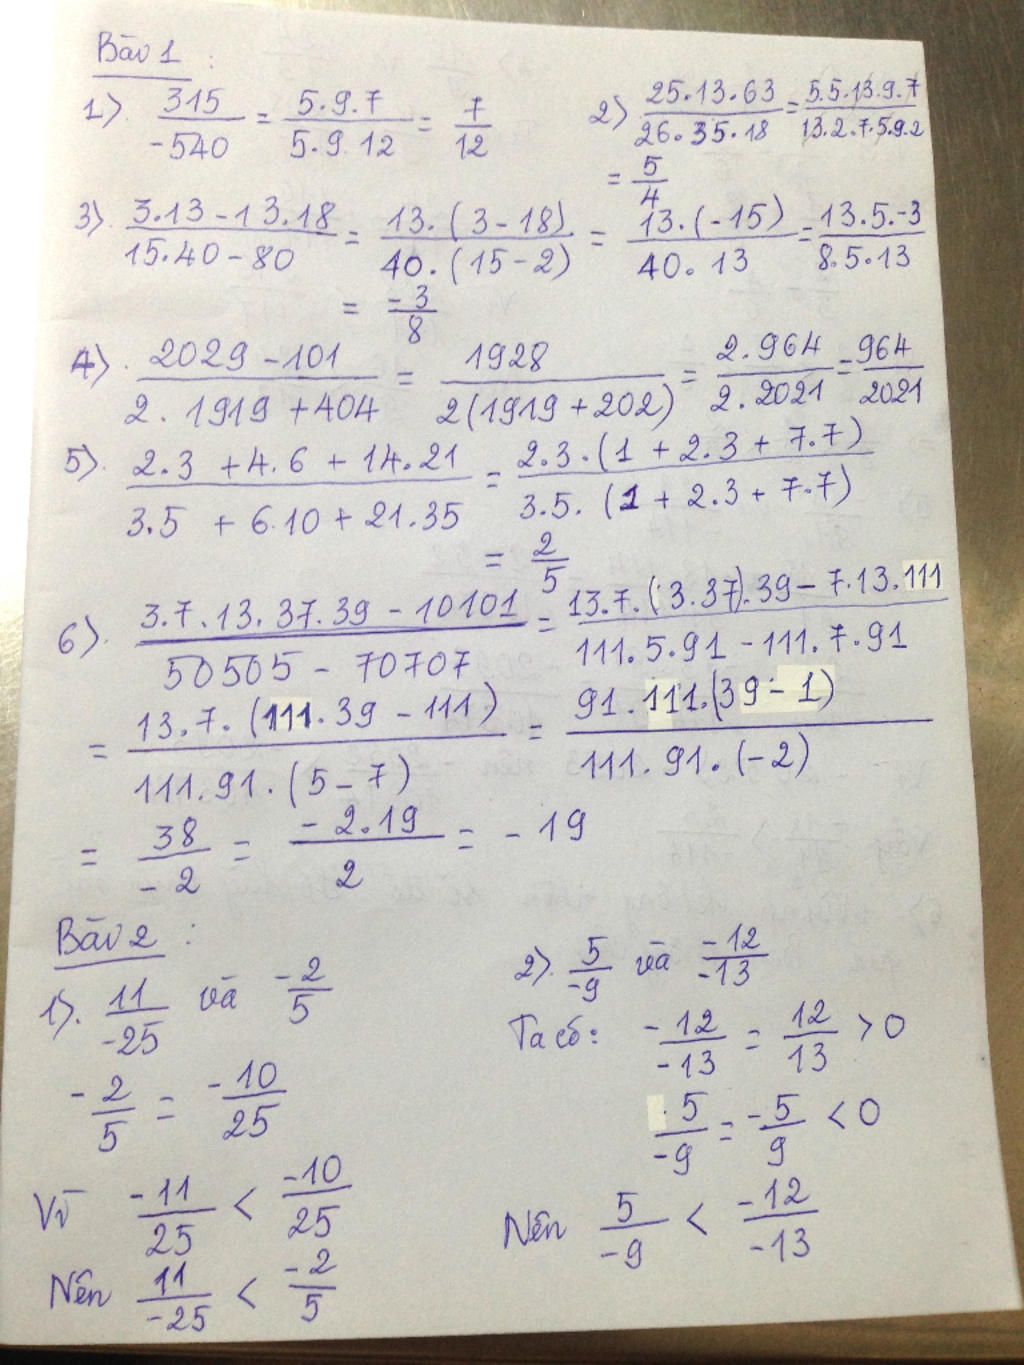 Bài 1 :
1) 315/-540 = 5.9.7/5.9.12 = 7/12
2) 25.13.63/26.35.18 = 5.5.13.9.7/13.2.7.5.9.2
= 5/4
3) 3.13-13.18/15.40-80 = 13.(3-18)/40.(15-2) = 13.(-15)/40.13 = 13.5.-3/8.5.13
= -3/8
4) 2029-101/2.1919+404 = 1928/2(1919+202) = 2.964/2.2021 = 964/2021
5) 2.3+4.6+14.21/3.5+6.10+21.35 = 2.3.(1+2.3+7.7)/3.5.(1+2.3+7.7)
= 2/5
6) 3.7.13.37.39-10101/50505-70707 = 13.7.(3.37).39-7.13.111/111.5.91-111.7.91
= 13.7.(111.39-111)/111.91.(5-7) = 91.111.(39-1)/111.91.(-2)
= 38/-2 = -2.19/2 = -19
Bài 2 :
1). 11/-25 và -2/5
-2/5 = -10/25
Vì -11/25 < -10/25
Nên 11/-25 < -2/5
2). 5/-9 và -12/-13
Ta có: -12/-13 = 12/13 > 0
5/-9 = -5/9 < 0
Nên 5/-9 < -12/-13